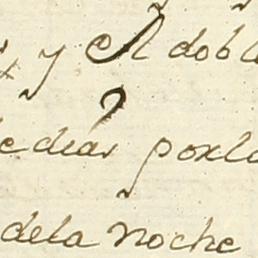 y el dobl
e dias porla
dela noche